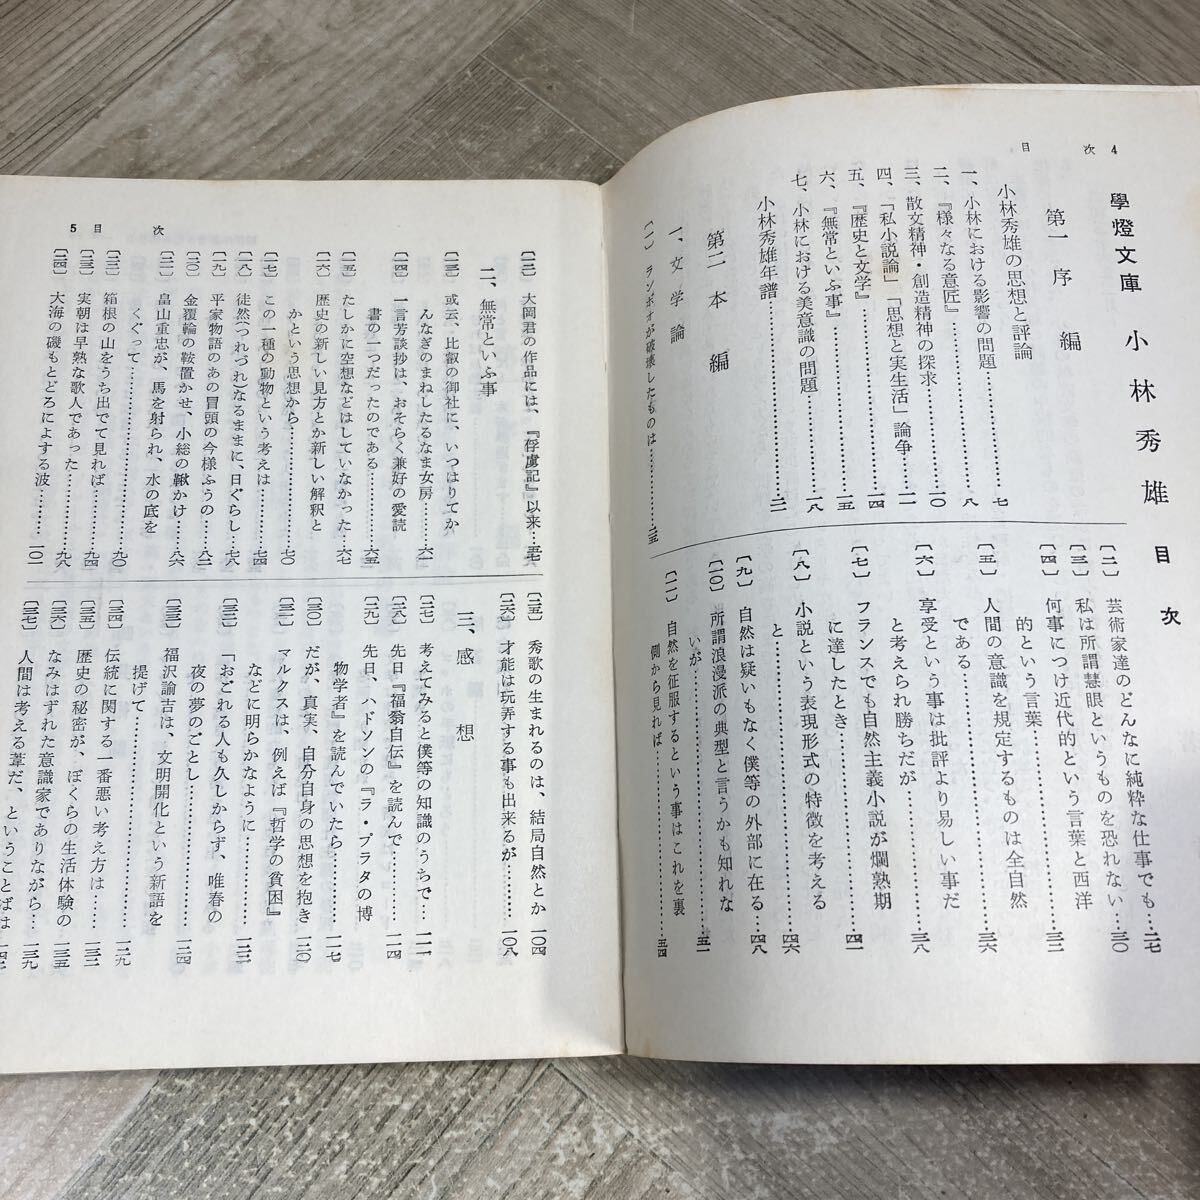 目次 4
學燈文庫 小林秀雄 目次
第一 序編
小林秀雄の思想と評論
一、小林における影響の問題……七
二、『様々なる意匠』……八
三、散文精神・創造精神の探求……一〇
四、「私小説論」「思想と実生活」論争……一一
五、『歴史と文学』……一四
六、『無常といふ事』……一五
七、小林における美意識の問題……一八
小林秀雄年譜……二一
第二 本編
一、文学論
〔一〕 ランボオが破壊したものは……二五
〔二〕 芸術家達のどんなに純粋な仕事でも…二七
〔三〕 私は所謂慧眼というものを恐れない…三〇
〔四〕 何事につけ近代的という言葉と西洋
的という言葉……三二
〔五〕 人間の意識を規定するものは全自然
である……三六
〔六〕 享受という事は批評より易しい事だ
と考えられ勝ちだが……三八
〔七〕 フランスでも自然主義小説が爛熟期
に達したとき……四一
〔八〕 小説という表現形式の特徴を考える
と……四六
〔九〕 自然は疑いもなく僕等の外部に在る…四八
〔一〇〕 所謂浪漫派の典型と言うかも知れな
いが……五一
〔一一〕 自然を征服するという事はこれを裏
側から見れば……五四
5 目次
〔一二〕 大岡君の作品には、『俘虜記』以来…五七
二、無常といふ事
〔一三〕 或云、比叡の御社に、いつはりてか
んなぎのまねしたるなま女房……六一
〔一四〕 一言芳談抄は、おそらく兼好の愛読
書の一つだったのである……六五
〔一五〕 たしかに空想などはしていなかった…六七
〔一六〕 歴史の新しい見方とか新しい解釈と
かという思想から……七〇
〔一七〕 この一種の動物という考えは……七四
〔一八〕 徒然(つれづれ)なるままに、日ぐらし…七八
〔一九〕 平家物語のあの冒頭の今様ふうの……八二
〔二〇〕 金覆輪の鞍置かせ、小総の鞦かけ……八六
〔二一〕 畠山重忠が、馬を射られ、水の底を
くぐって……九〇
〔二二〕 箱根の山をうち出でて見れば……九〇
〔二三〕 実朝は早熟な歌人であった……九八
〔二四〕 大海の磯もとどろによする波……一〇一
〔二五〕 秀歌の生まれるのは、結局自然とか…一〇四
〔二六〕 才能は玩弄する事も出来るが……一〇八
三、感想
〔二七〕 考えてみると僕等の知識のうちで…一一一
〔二八〕 先日『福翁自伝』を読んで……一一四
〔二九〕 先日、ハドソンの『ラ・プラタの博
物学者』を読んでいたら……一一七
〔三〇〕 だが、真実、自分自身の思想を抱き…一二〇
〔三一〕 マルクスは、例えば『哲学の貧困』
などに明らかなように……一二二
〔三二〕 「おごれる人も久しからず、唯春の
夜の夢のごとし……一二四
〔三三〕 福沢諭吉は、文明開化という新語を
提げて……一二九
〔三四〕 伝統に関する一番悪い考え方は……一三二
〔三五〕 歴史の秘密が、ぼくらの生活体験の…一三五
〔三六〕 なみはずれた意識家でありながら…一三九
〔三七〕 人間は考える葦だ、ということばは